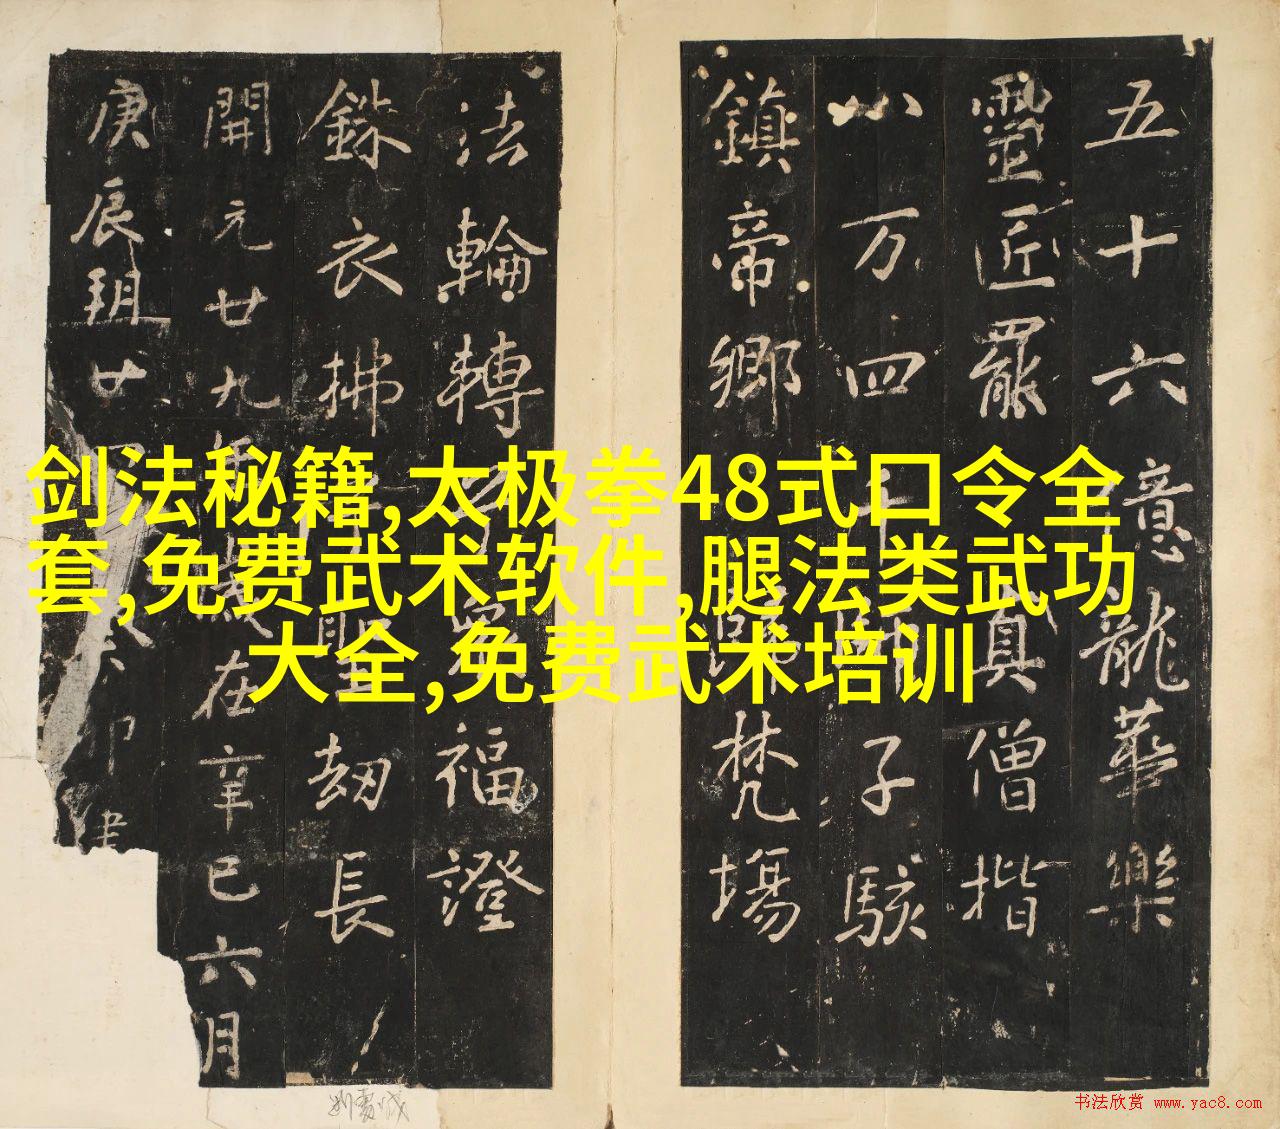 五十六億龍華樂
靈匠罷
真僧揩
八万四千
子駭
鎮帝鄉
梵場
法輪轉
福證
銖衣拂
劫長
開元廿九年
在辛巳六月
庚辰朔廿
剑法秘籍,太极拳48式口令全
套,免费武术软件,腿法类武功
大全,免费武术培训
书法欣赏 www.yac8.com